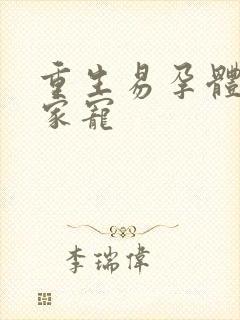 重生易孕體
家寵
李瑞偉